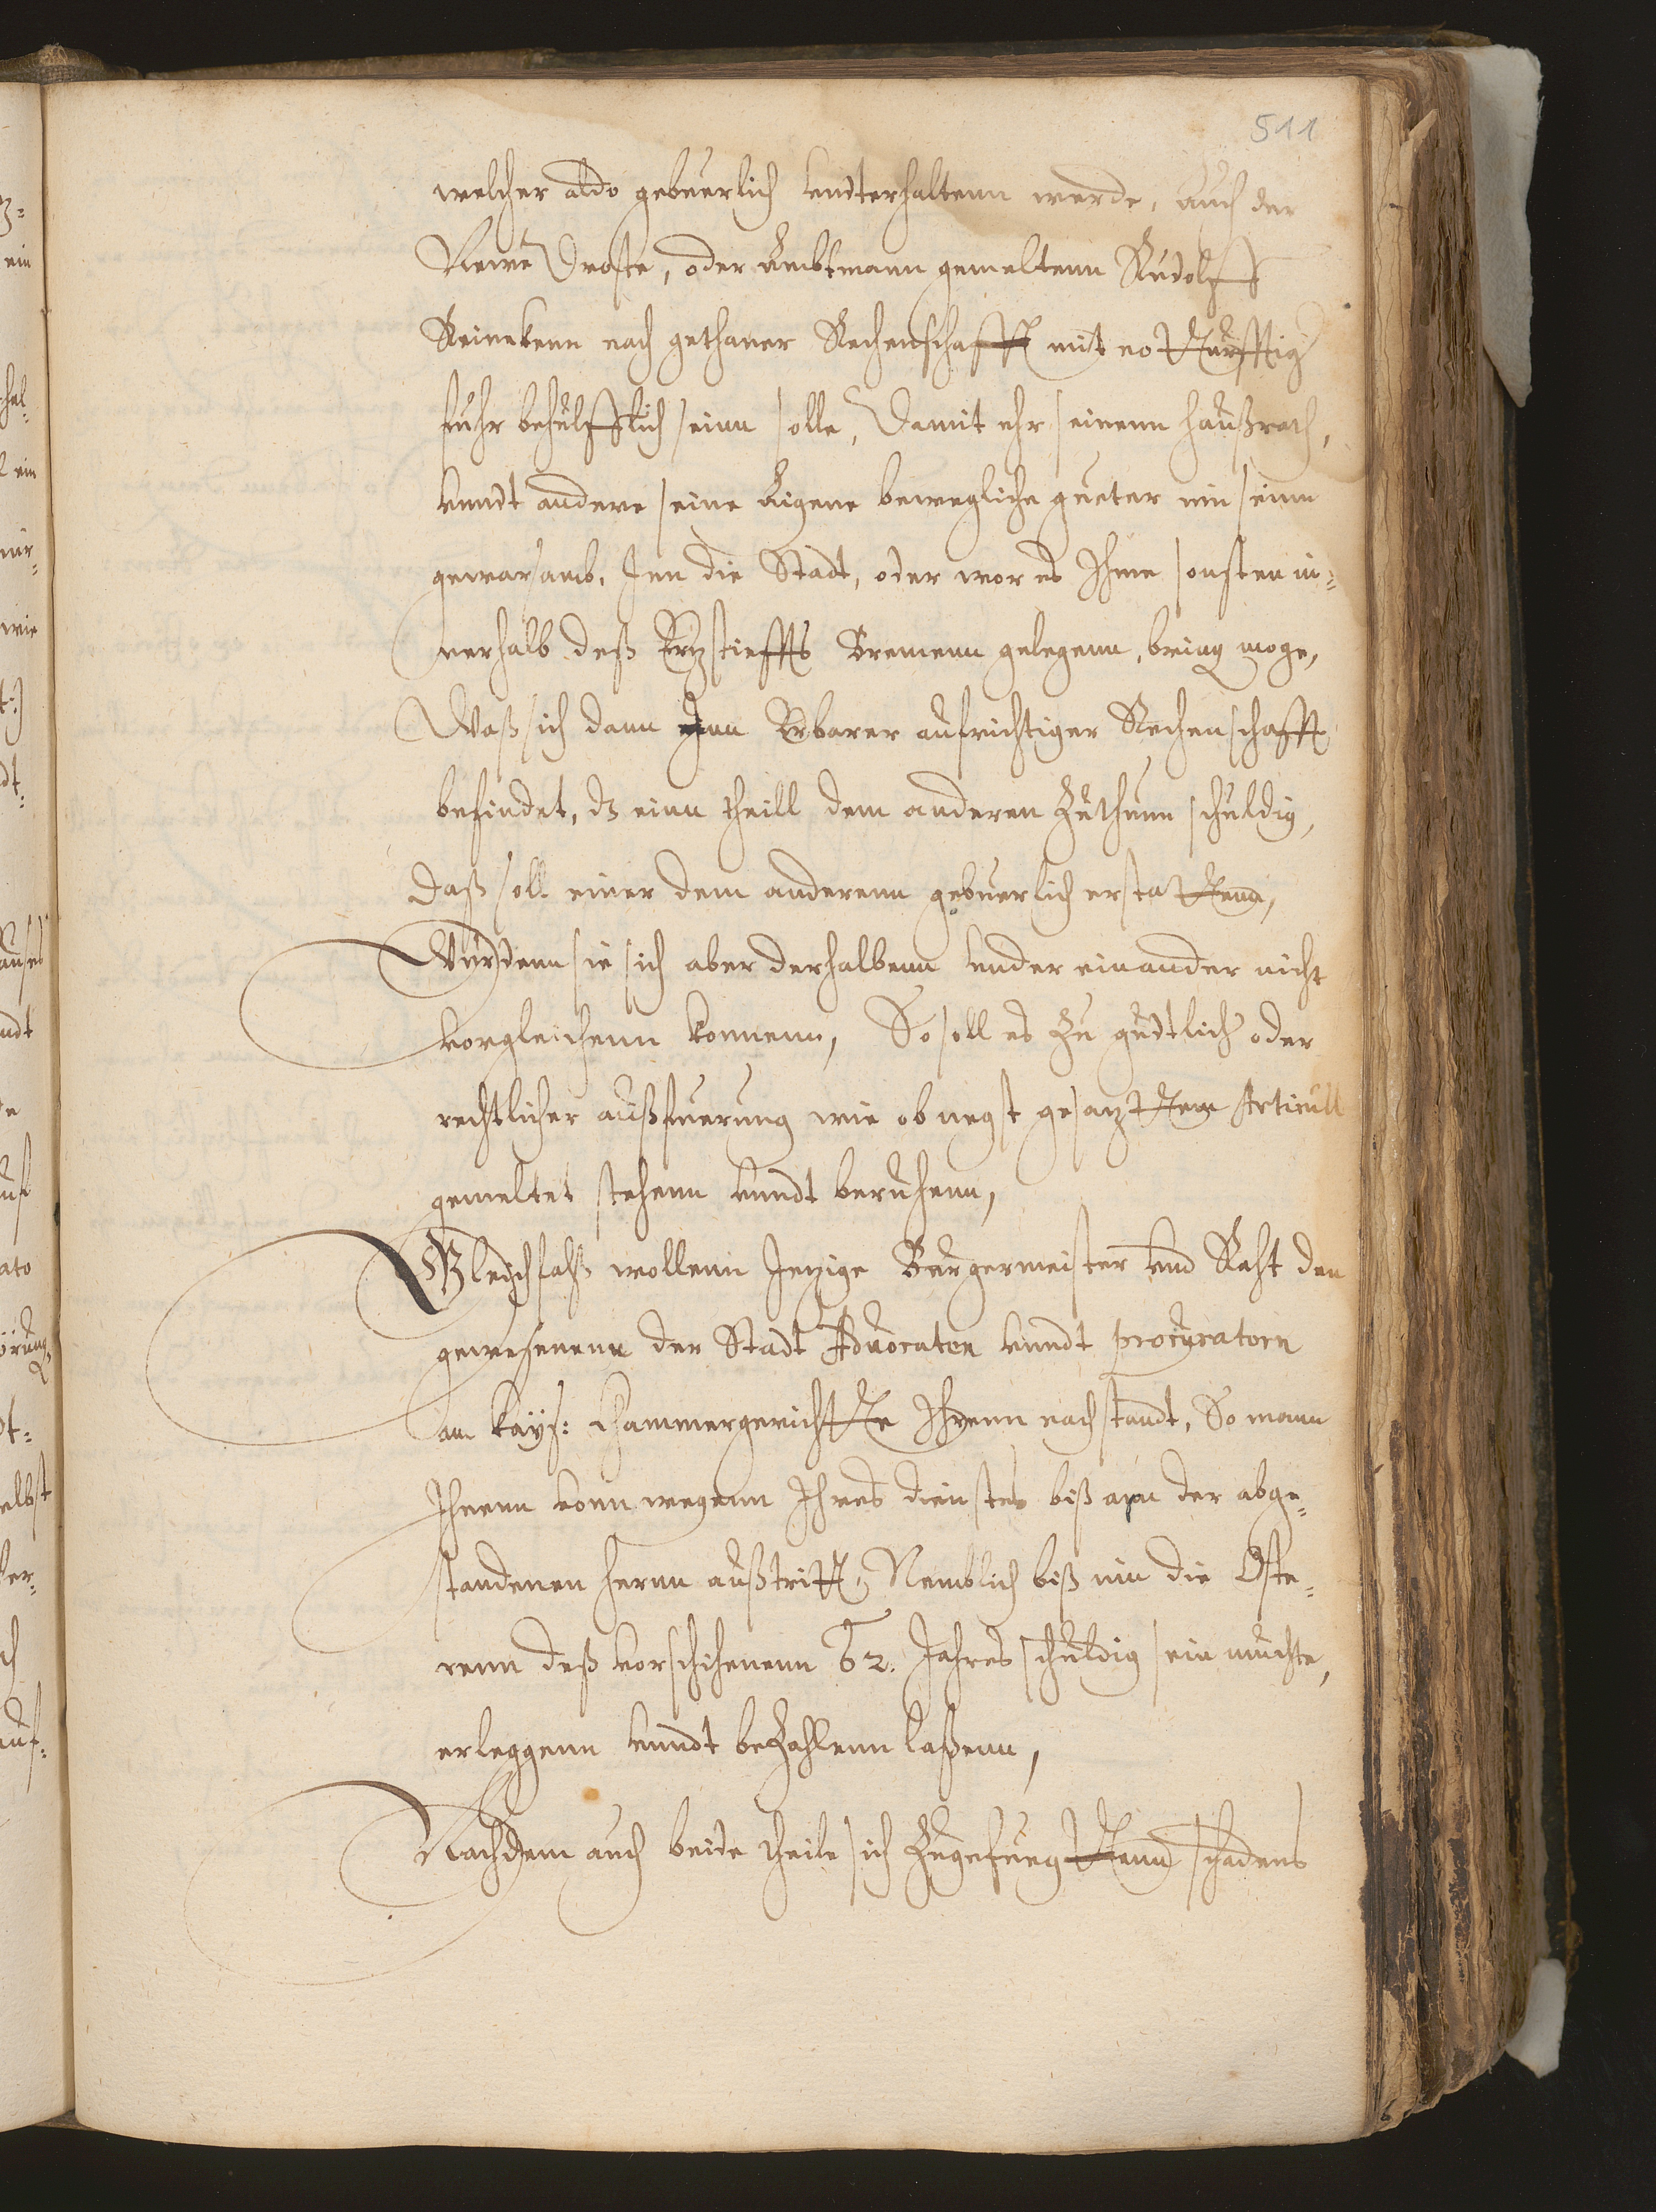 511
welcher aldo gebuerlich undterhaltenn werde, auch der
Newe Droste, oder Ambtmann gemeltenn Rudolff
Reinekenn nach gethaner Rechenschafft mit notturfftig
fuhr behulfflich seinn solle, Damit ehr seinenn haußrath,
unndt andere seine Eigene bewegliche gueter inn seinn
gewarsamb, Inn die Stadt, oder wor es Ihme sonsten in=
nerhalb deß Erzstieffts Bremenn gelegenn, bring moge,
Waß sich dann Inn Erbarer aufrichtiger Rechenschafft
befindet, dz einn theill dem anderen zuthunn schuldig,
Daß soll einer dem anderenn gebuerlich erstattenn,
Wurdenn sie sich aber derhalbenn under einander nicht
vorgleichenn konnenn, So soll es zu gudtlich oder
rechtlicher außfuerung wie ob negst gesazttem Articull
gemeltet stehenn unndt beruhenn,
Gleichfalß wollenn Jezige Burgermeister und Raht den
gewesenenn der Stadt Advocaten unndt procuratorn
am kayß: Chammergerichtte Ihrenn nachstandt, So mann
Ihnenn vonn wegenn Ihres dienstes biß ann der abge=
standenen herrn außtritt, Nemblich biß inn die Oste=
renn deß vorschienenn 62. Jahres schuldig sein muchte,
erleggenn unndt bezahlenn laßenn,
Nachdem auch beide theile sich zugefuegttenn schadens